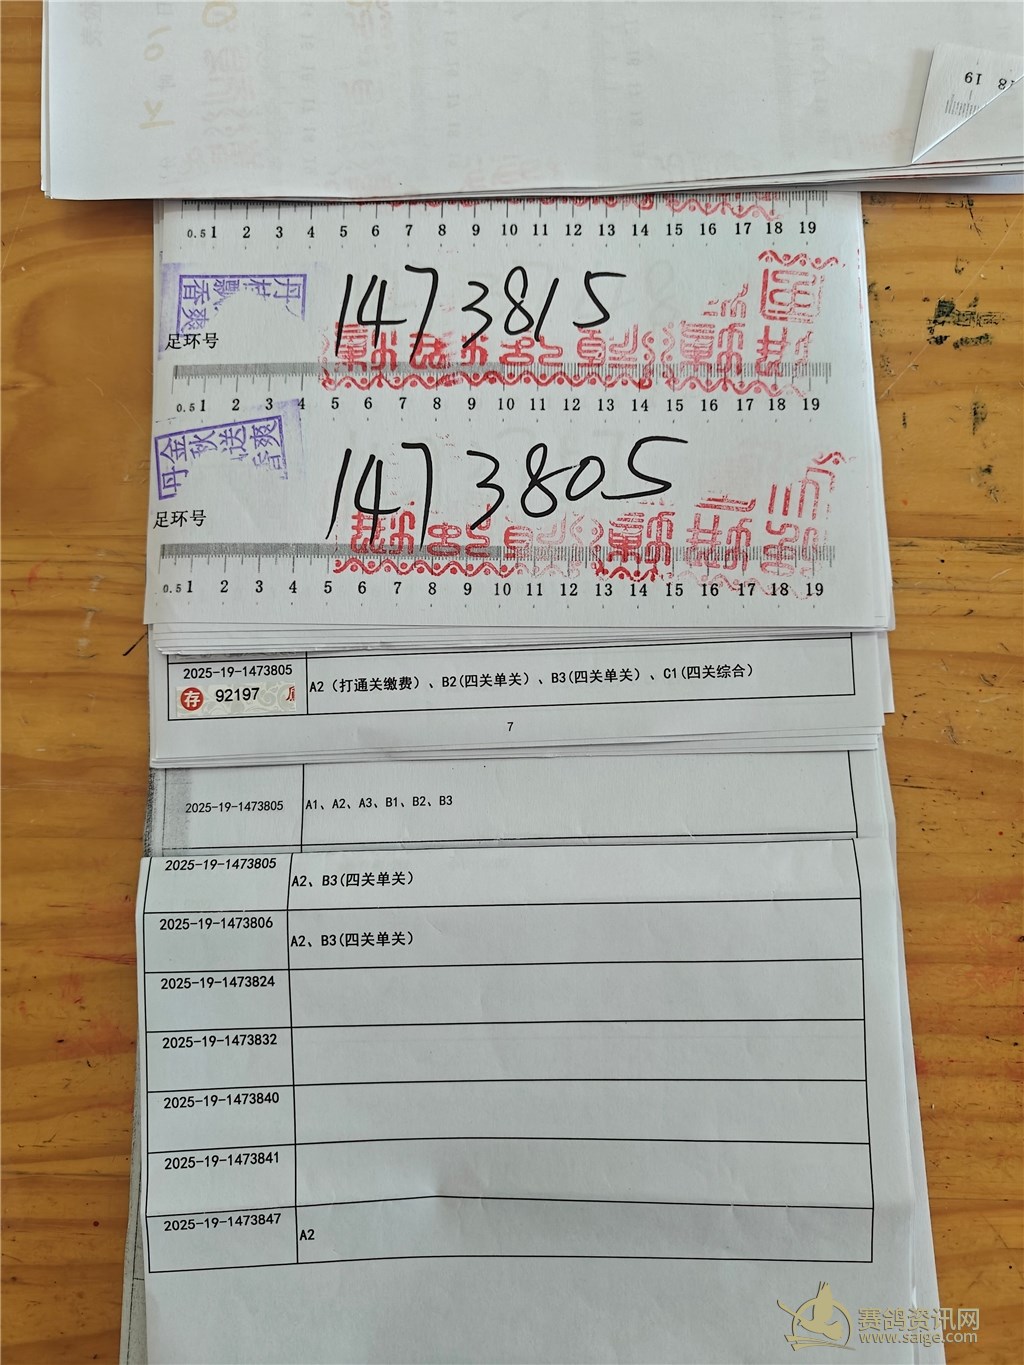 18 19
0.5 1 2 3 4 5 6 7 8 9 10 11 12 13 14 15 16 17 18 19
1473815
足环号
0.5 1 2 3 4 5 6 7 8 9 10 11 12 13 14 15 16 17 18 19
丹金秋送爽
1473805
足环号
0.5 1 2 3 4 5 6 7 8 9 10 11 12 13 14 15 16 17 18 19
2025-19-1473805 A2(打通关缴费)、B2(四关单关)、B3(四关单关)、C1(四关综合)
存 92197
7
2025-19-1473805 A1、A2、A3、B1、B2、B3
2025-19-1473805 A2、B3(四关单关)
2025-19-1473806 A2、B3(四关单关)
2025-19-1473824
2025-19-1473832
2025-19-1473840
2025-19-1473841
2025-19-1473847 A2
赛鸽资讯网
www.saige.com